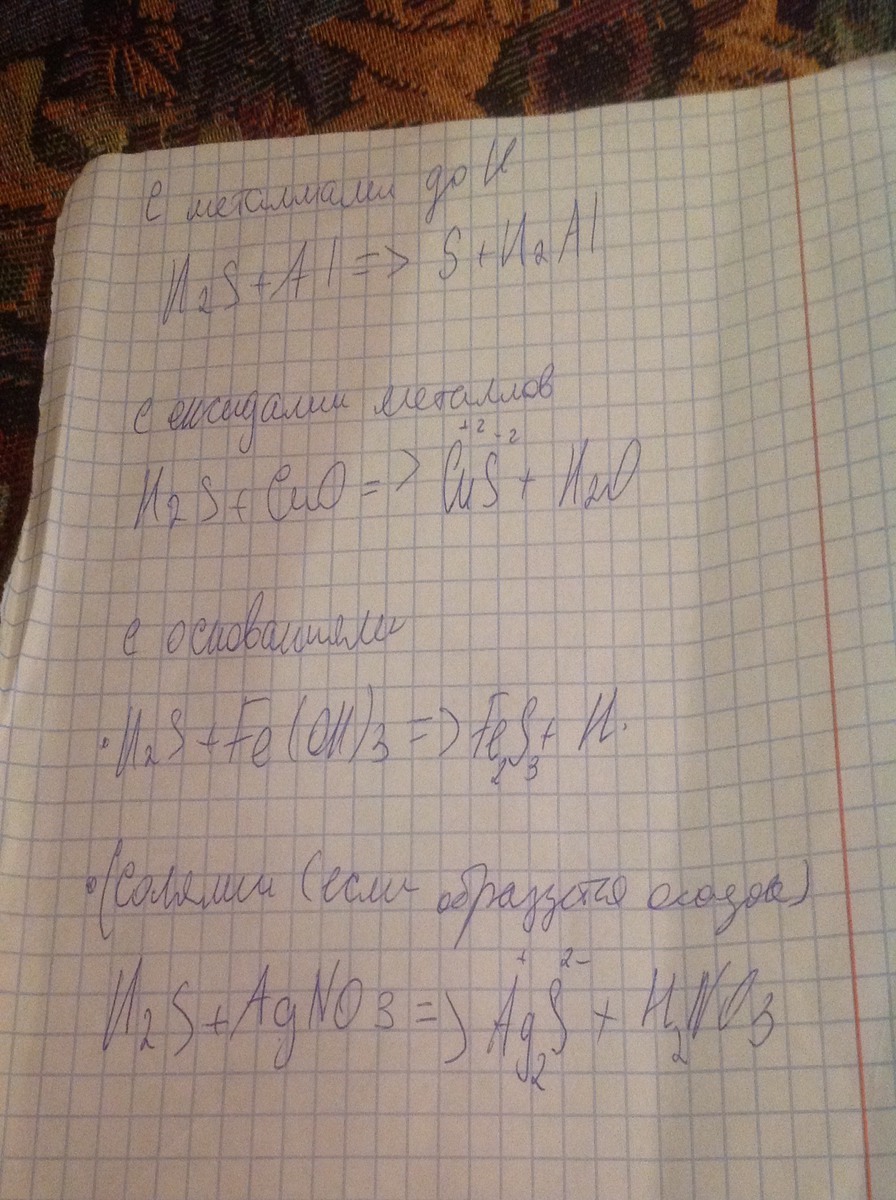 с металлами до H
H₂S + Al => S + H₂Al
с оксидами металлов
H₂S + CuO => Cu⁺²S⁻² + H₂O
с основаниями
· H₂S + Fe(OH)₃ => Fe₂S₃ + H.
· (солями (если образуется осадок)
H₂S + AgNO₃ => Ag⁺₂S²⁻ + H₂NO₃